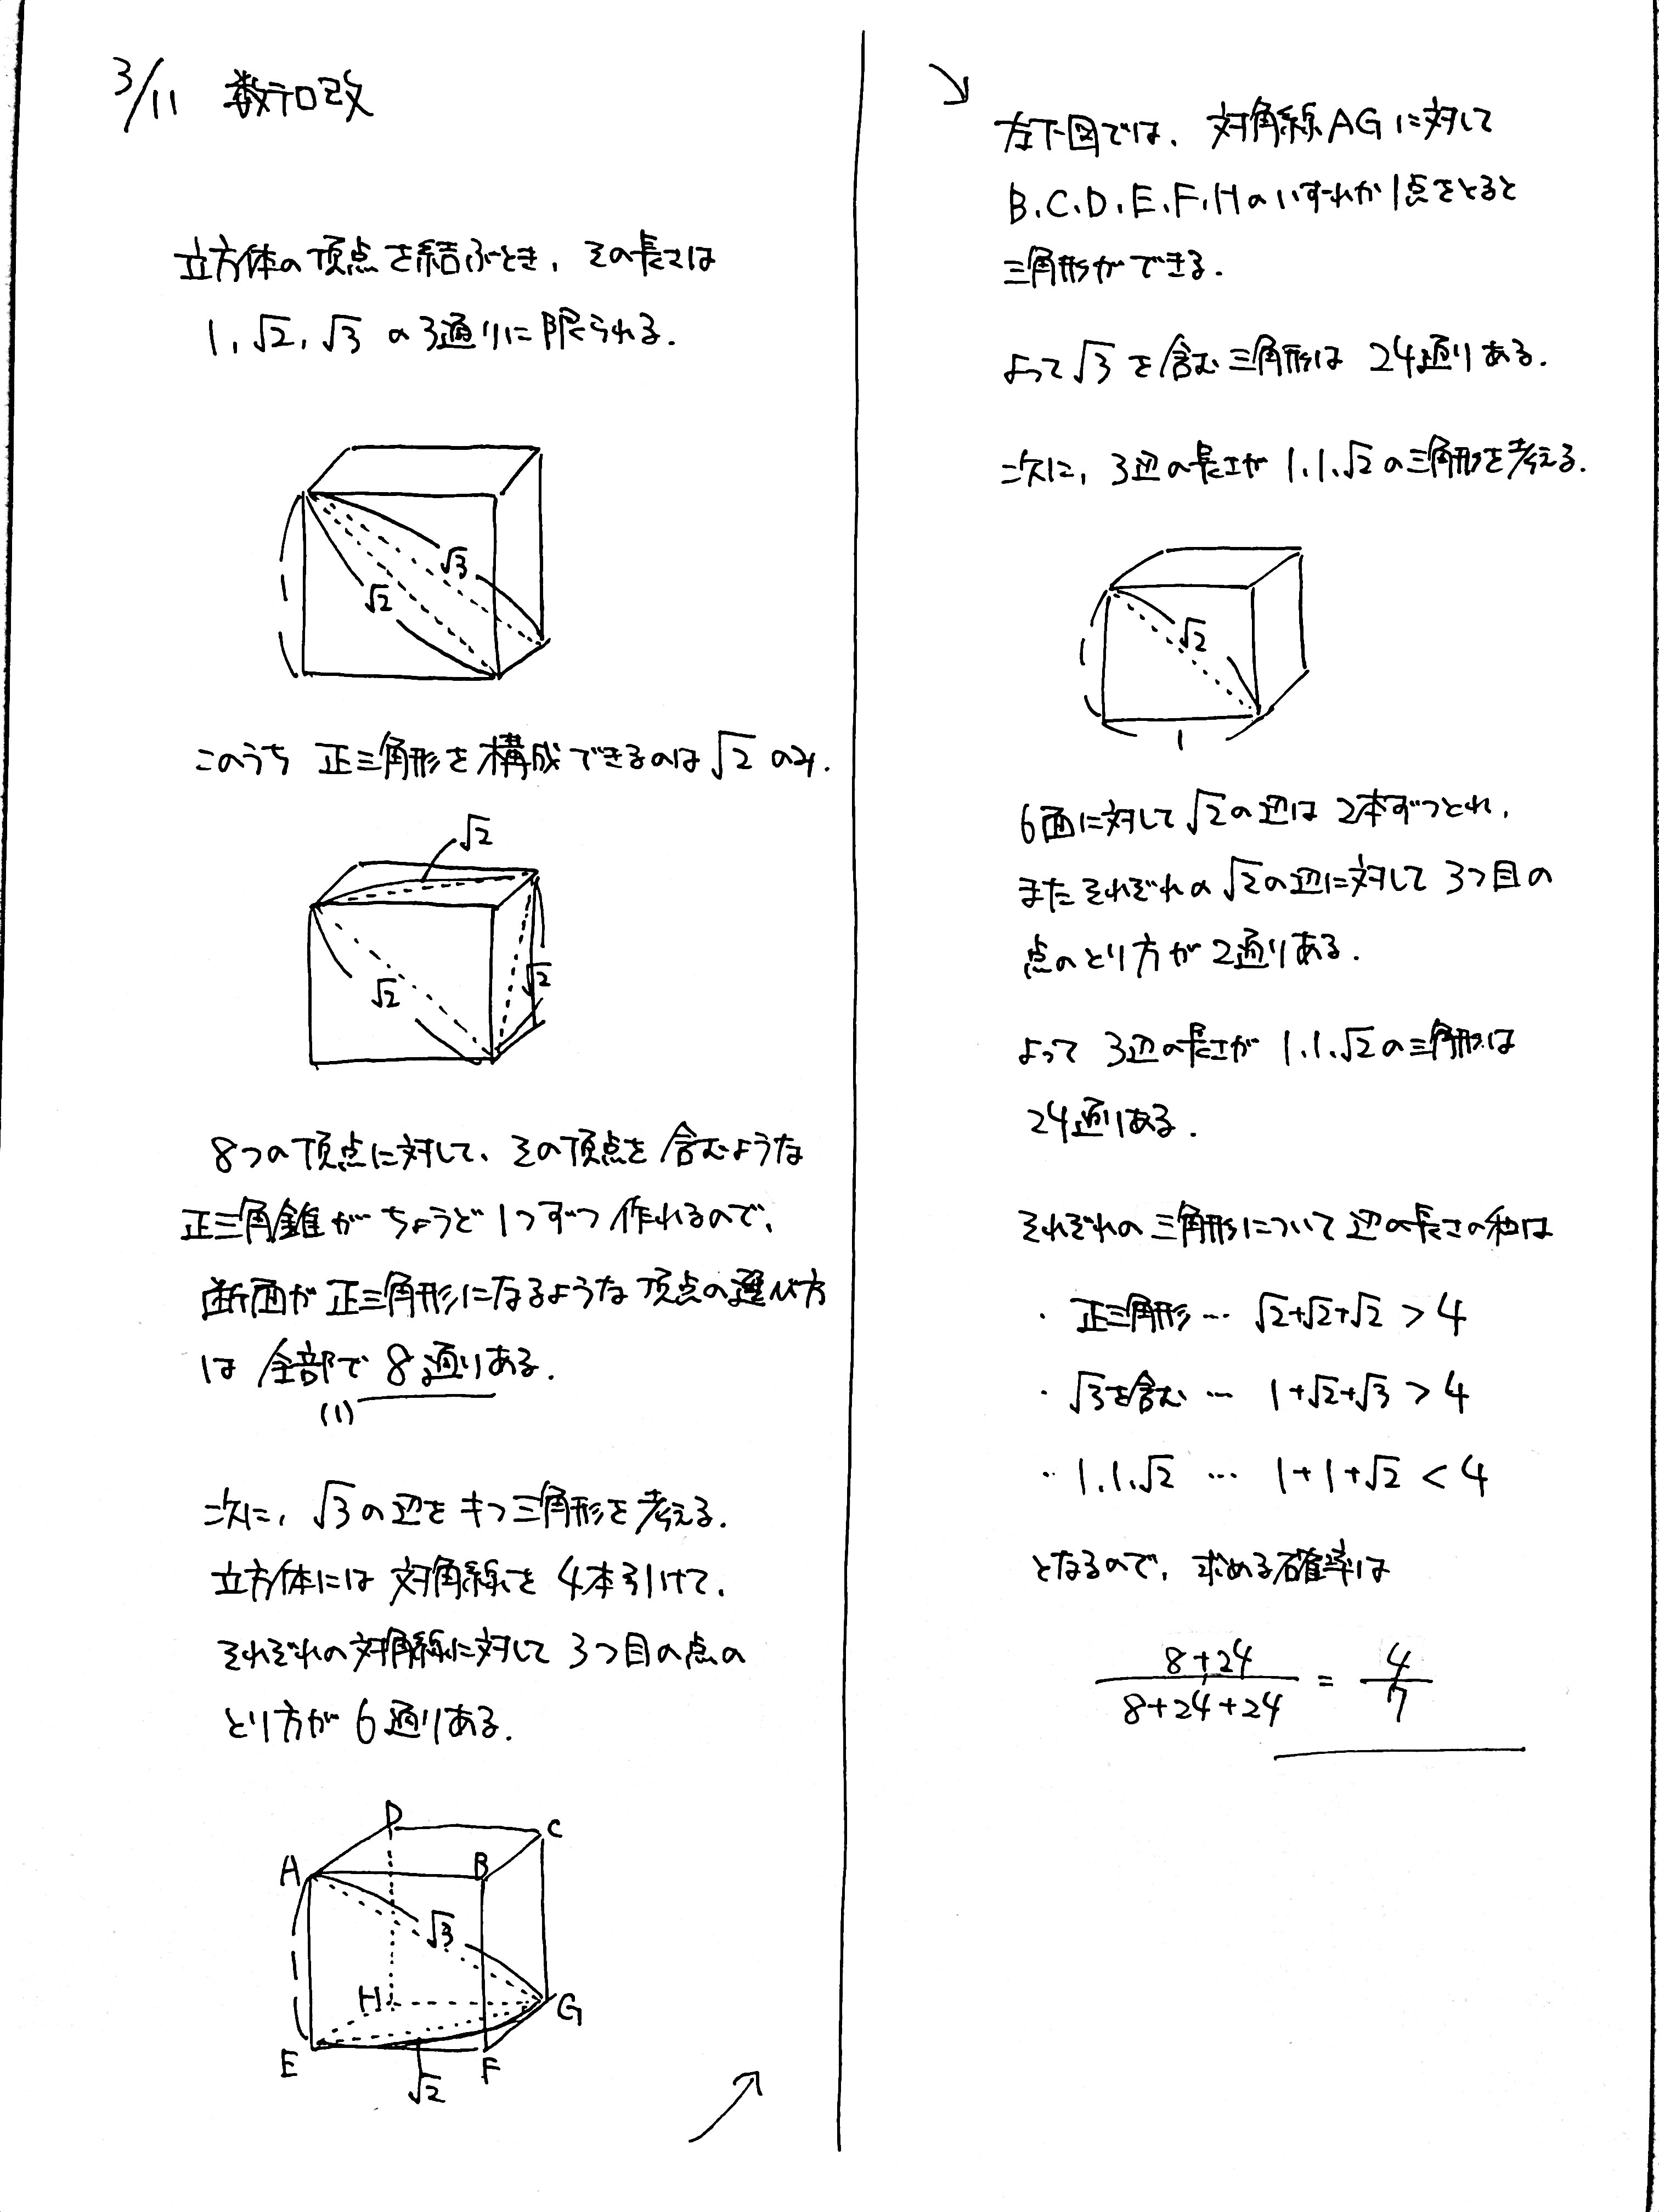 3/11 数テロ改
立方体の頂点を結ぶとき、その長さは
1, √2, √3 の3通りに限られる.
√3
√2
1
このうち 正三角形を構成できるのは √2 のみ.
√2
√2
√2
8つの頂点に対して、その頂点を含むような
正三角錐がちょうど1つずつ作れるので、
断面が正三角形になるような頂点の選び方
は全部で 8通りある.
(1)
次に, √3の辺をもつ三角形を考える.
立方体には対角線を4本引けて、
それぞれの対角線に対して3つ目の点の
とり方が6通りある.
D
C
A
B
√3
1
H
G
E
F
√2
左下図では、対角線AGに対して
B.C.D.E.F.Hのいずれか1点をとると
三角形ができる.
よって√3を含む三角形は 24通りある.
次に, 3辺の長さが 1.1.√2の三角形を考える.
√2
1
1
6面に対して√2の辺は2本ずつとれ,
またそれぞれの√2の辺に対して3つ目の
点のとり方が2通りある.
よって 3辺の長さが 1.1.√2の三角形は
24通りある.
それぞれの三角形について辺の長さの和は
・正三角形… √2+√2+√2 > 4
・√3を含む… 1+√2+√3 > 4
・1.1.√2 … 1+1+√2 < 4
となるので, 求める確率は
8+24 / 8+24+24 = 4/7